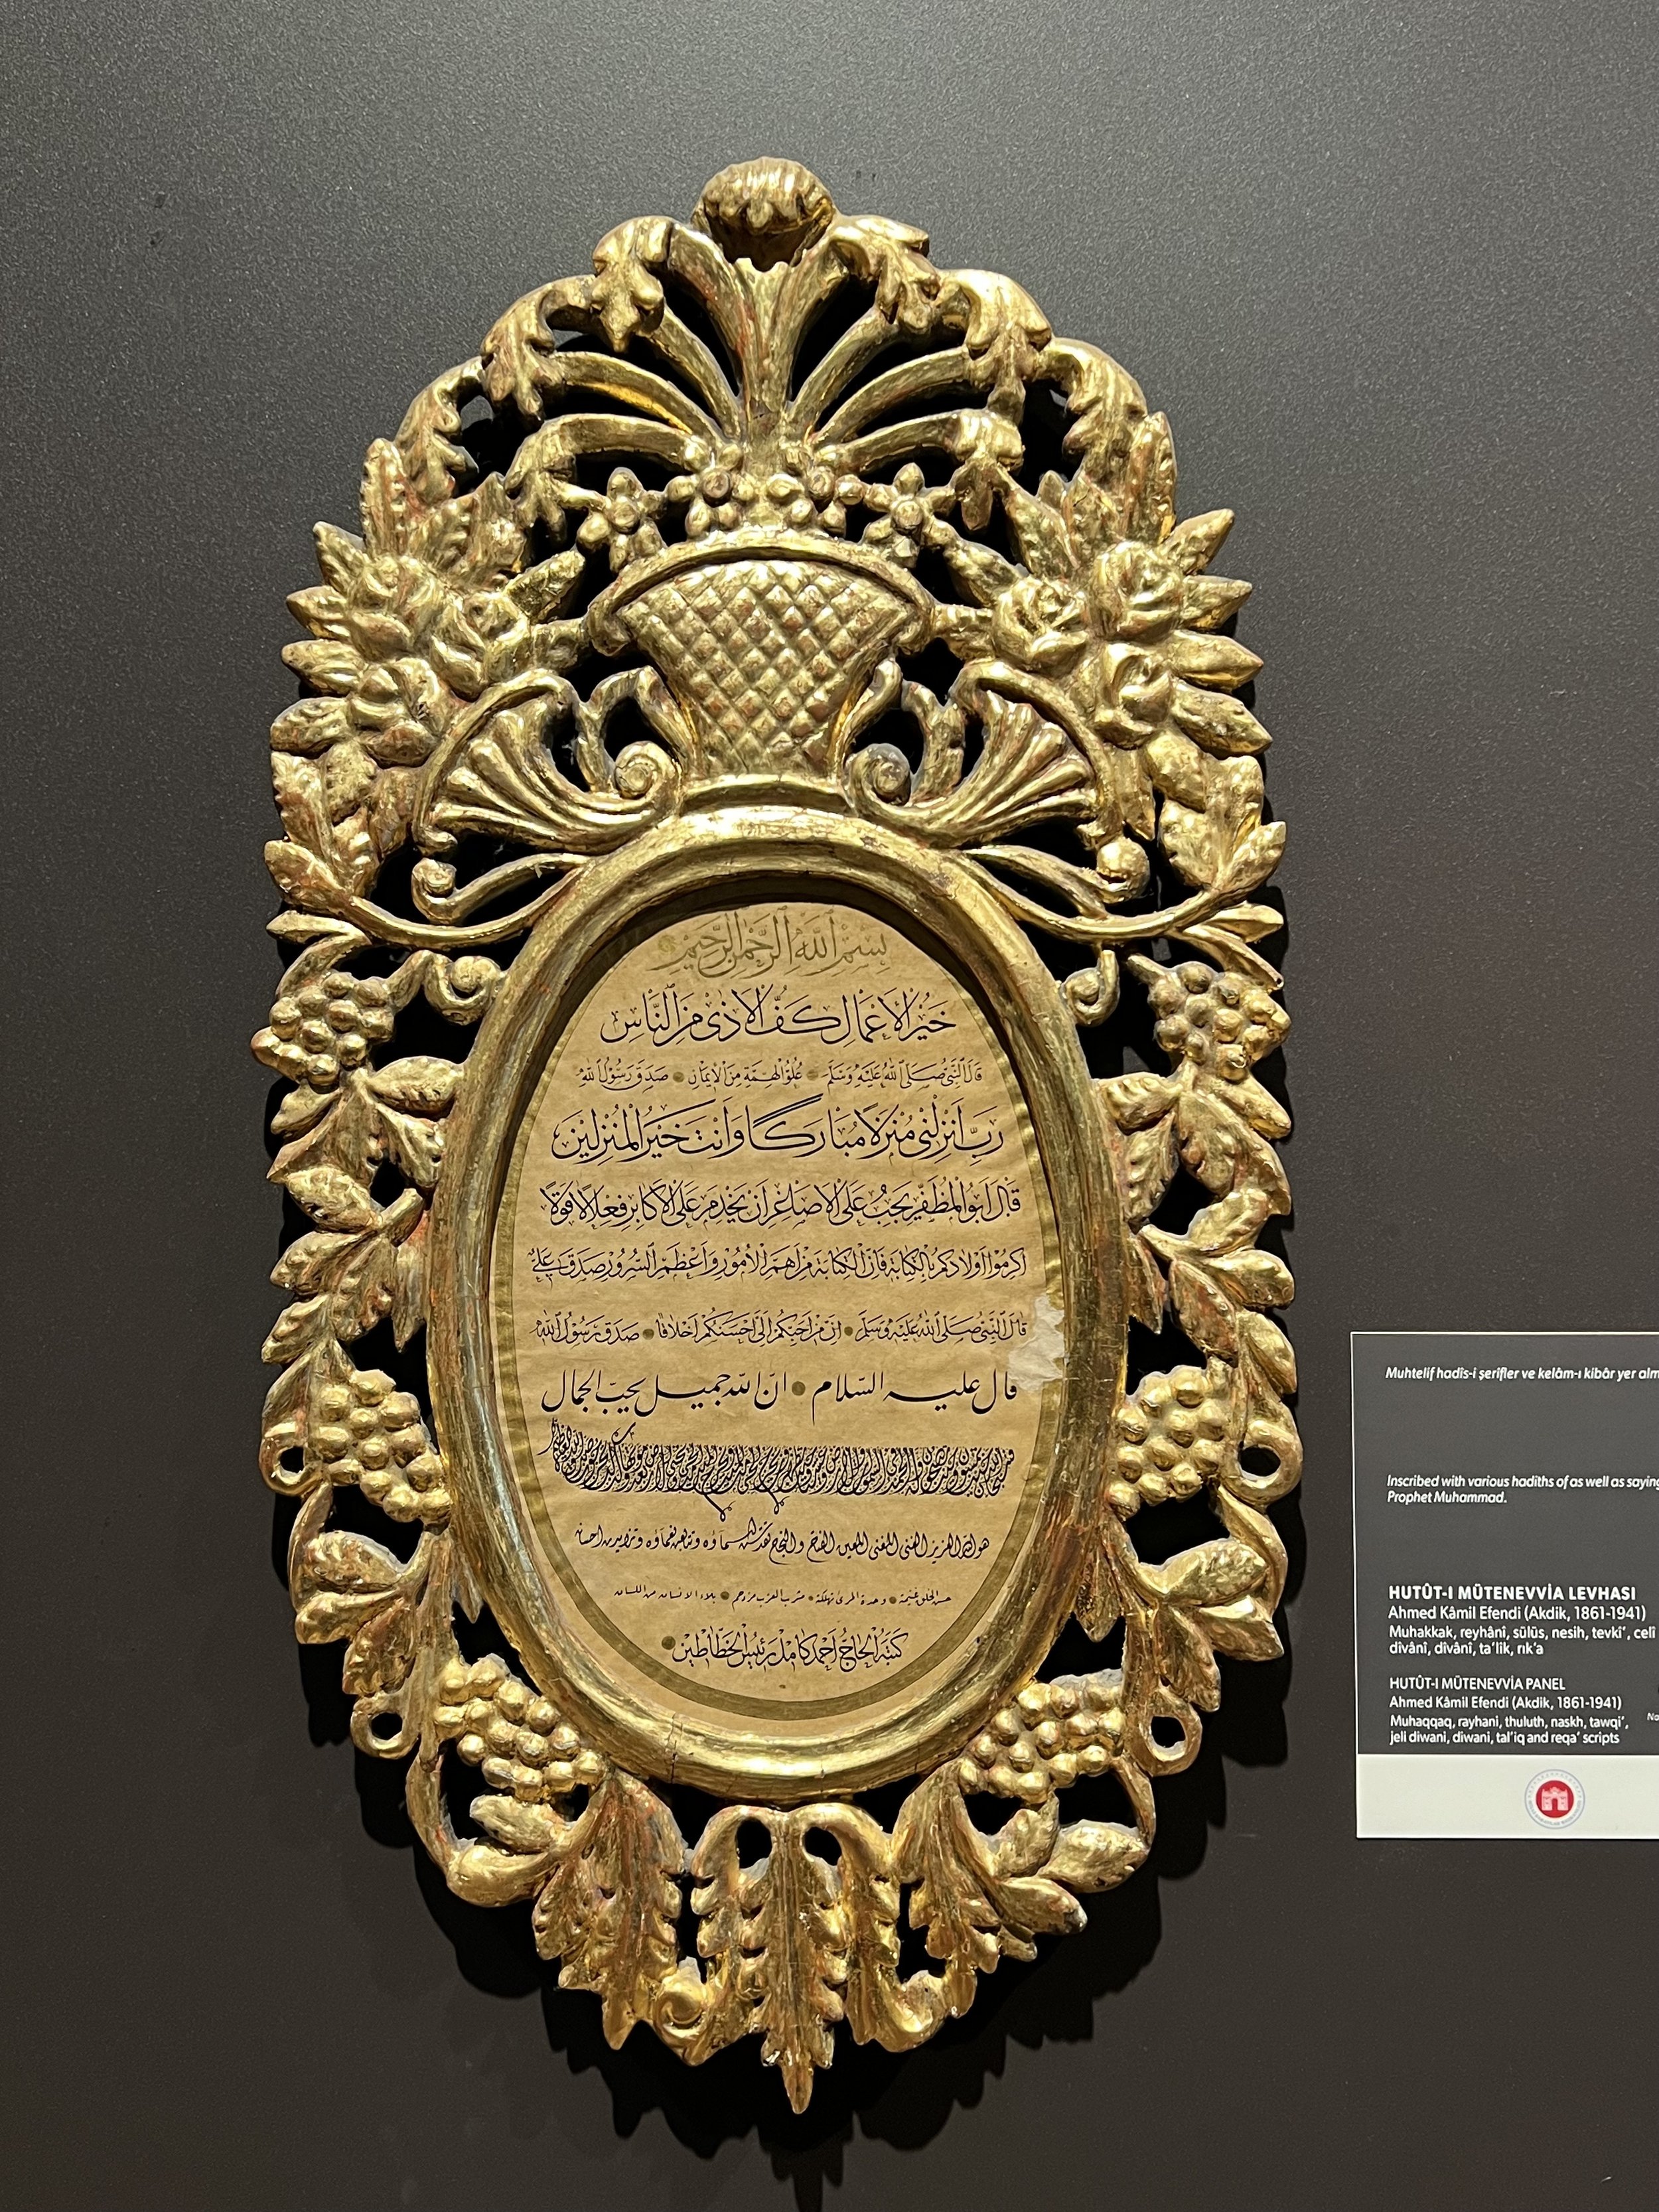 بِسْمِ اللّٰهِ الرَّحْمٰنِ الرَّحِيمِ
خَيْرُ الْاَعْمَالِ كَفُّ الْاَذٰى مِنَ النَّاسِ
قَالَ النَّبِيُّ صَلَّى اللّٰهُ عَلَيْهِ وَسَلَّمَ عُلُوُّ الْهِمَّةِ مِنَ الْاِيمَانِ صَدَقَ رَسُولُ اللّٰهِ
رَبِّ اَنْزِلْنِى مُنْزَلًا مُبَارَكًا وَاَنْتَ خَيْرُ الْمُنْزِلِينَ
قَالَ اَبُو الْمُظَفَّرِ يَجِبُ عَلَى الْاَصَاغِرِ اَنْ يَخْدِمَ عَلَى الْاَكَابِرِ فِعْلًا لَا قَوْلًا
اَكْرِمُوا اَوْلَادَكُمْ بِالْكِتَابَةِ فَاِنَّ الْكِتَابَةَ مِنْ اَهَمِّ الْاُمُورِ وَاَعْظَمِ السُّرُورِ صَدَقَ عَلِىٌّ
قَالَ النَّبِيُّ صَلَّى اللّٰهُ عَلَيْهِ وَسَلَّمَ اِنَّ مِنْ اَحَبِّكُمْ اِلَىَّ اَحْسَنَكُمْ اَخْلَاقًا صَدَقَ رَسُولُ اللّٰهِ
قال عليه السلام ان الله جميل يحب الجمال
هو الله العزيز الغنى المغنى المعين الفتاح
حسن الخلق غنيمة وحدة المرء تهلكة بلاء الانسان من اللسان
كَتَبَهُ الْحَاجُّ اَحْمَدُ كَامِلُ رَئِيسُ الْخَطَّاطِينَ
Muhtelif hadîs-i şerîfler ve kelâm-ı kibâr yer
Inscribed with various hadîths of as well as
Prophet Muhammad.
HUTÛT-I MÜTENEVVİA LEVHASI
Ahmed Kâmil Efendi (Akdik, 1861-1941)
Muhakkak, reyhânî, sülüs, nesih, tevkî‘, celî
dîvânî, dîvânî, ta‘lîk, rık‘a
HUTÛT-I MÜTENEVVİA PANEL
Ahmed Kâmil Efendi (Akdik, 1861-1941)
Muhaqqaq, rayhani, thuluth, naskh, tawqi‘,
jeli diwani, diwani, tal‘iq and reqa‘ scripts